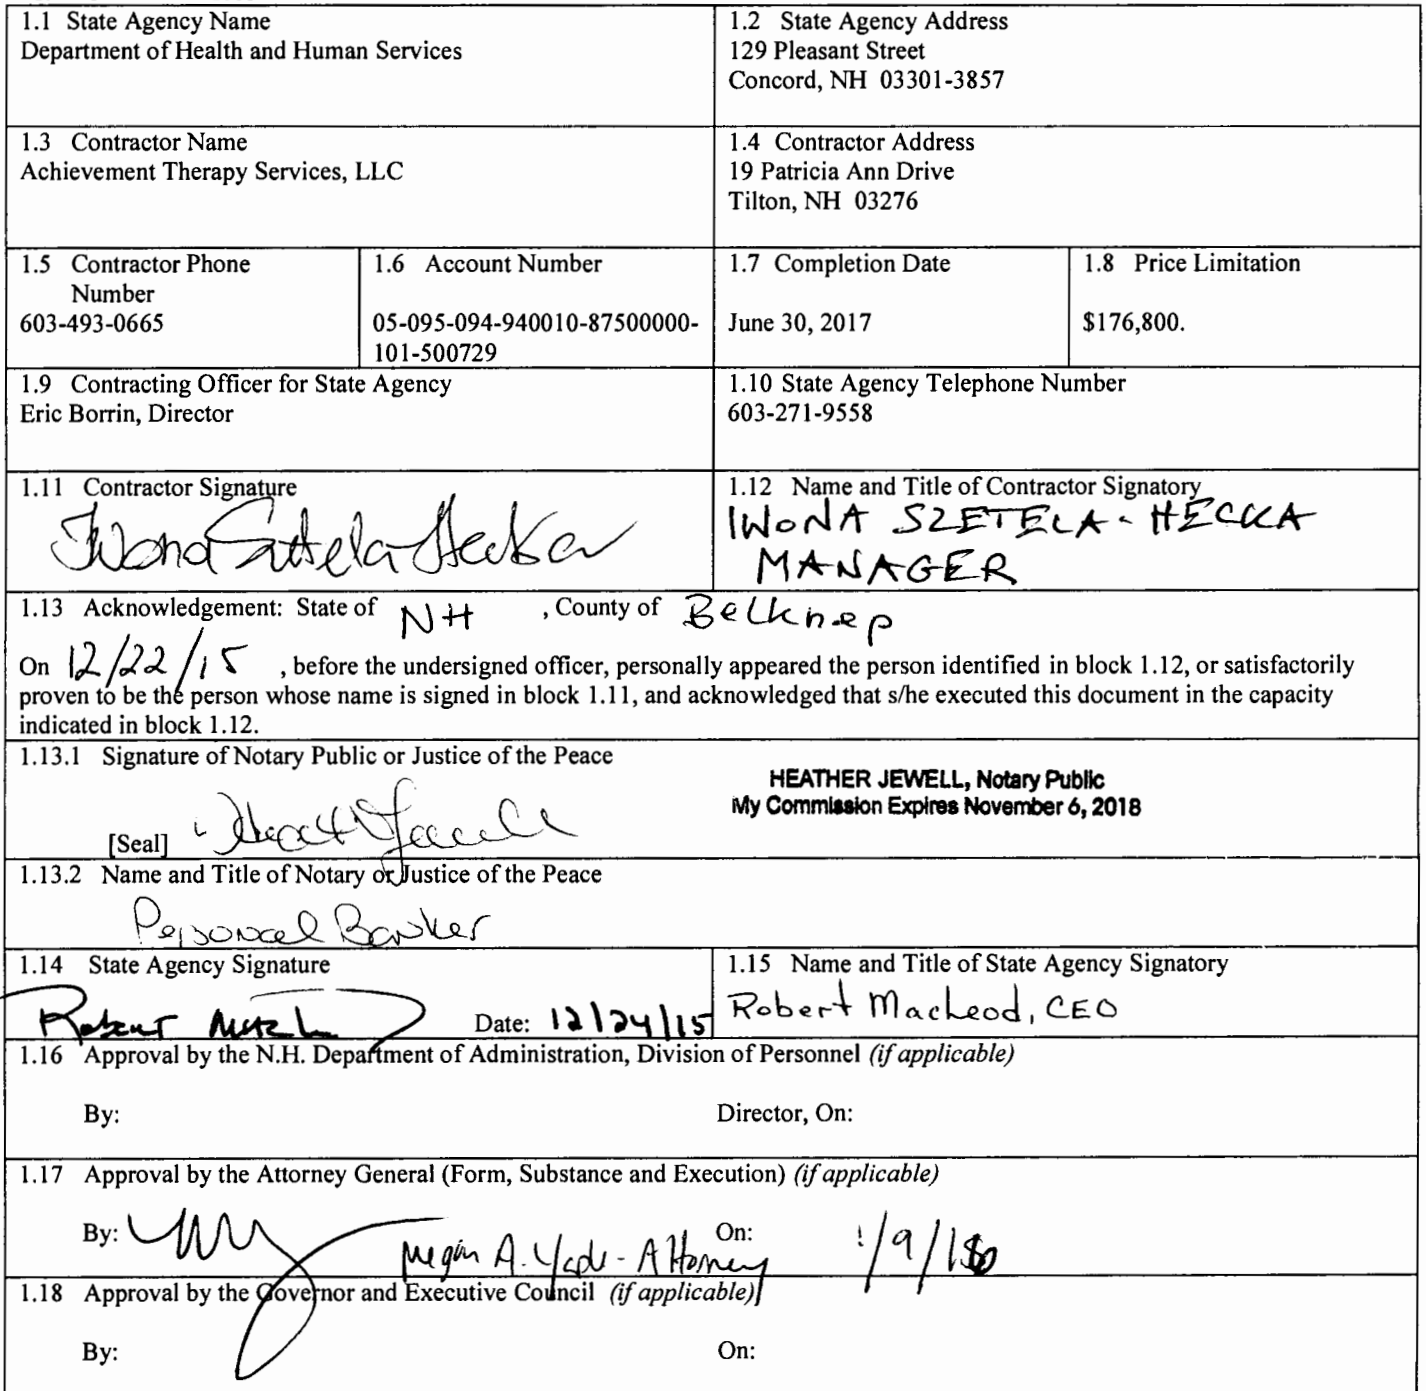 1.1 State Agency Name
Department of Health and Human Services
1.2 State Agency Address
129 Pleasant Street
Concord, NH 03301-3857
1.3 Contractor Name
Achievement Therapy Services, LLC
1.4 Contractor Address
19 Patricia Ann Drive
Tilton, NH 03276
1.5 Contractor Phone
Number
603-493-0665
1.6 Account Number
05-095-094-940010-87500000-
101-500729
1.7 Completion Date
June 30, 2017
1.8 Price Limitation
$176,800.
1.9 Contracting Officer for State Agency
Eric Borrin, Director
1.10 State Agency Telephone Number
603-271-9558
1.11 Contractor Signature
Iwona Szetela-Hecka
1.12 Name and Title of Contractor Signatory
IWONA SZETELA-HECKA
MANAGER
1.13 Acknowledgement: State of NH , County of Belknap
On 12/22/15 , before the undersigned officer, personally appeared the person identified in block 1.12, or satisfactorily
proven to be the person whose name is signed in block 1.11, and acknowledged that s/he executed this document in the capacity
indicated in block 1.12.
1.13.1 Signature of Notary Public or Justice of the Peace
HEATHER JEWELL, Notary Public
My Commission Expires November 6, 2018
[Seal] Heather Jewell
1.13.2 Name and Title of Notary or Justice of the Peace
Personal Banker
1.14 State Agency Signature
Robert
Date: 12/24/15
1.15 Name and Title of State Agency Signatory
Robert MacLeod, CEO
1.16 Approval by the N.H. Department of Administration, Division of Personnel (if applicable)
By:
Director, On:
1.17 Approval by the Attorney General (Form, Substance and Execution) (if applicable)
By: Megan A. - Attorney
On: 1/9/16
1.18 Approval by the Governor and Executive Council (if applicable)
By:
On: